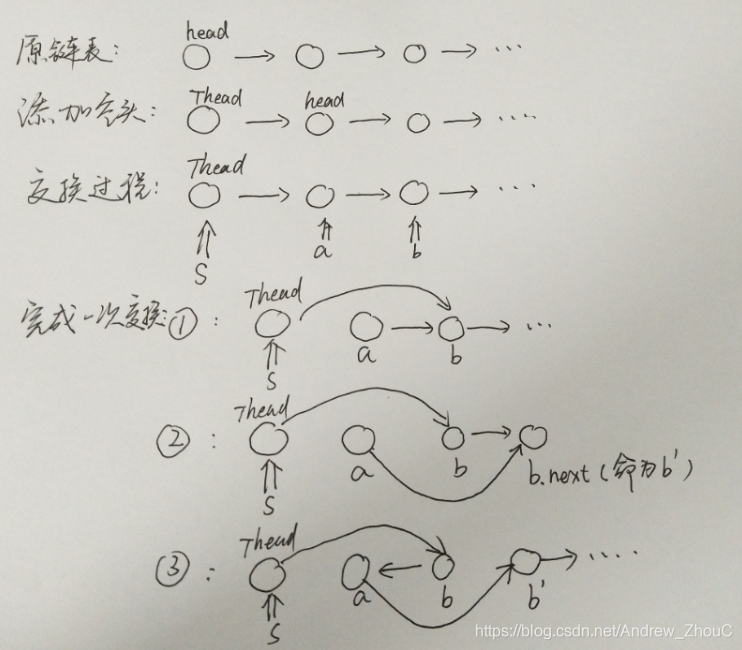 head
原链表：
...
Thead head
添加空头：
....
Thead
交换过程：
...
S a b
Thead
完成一次交换：① ：
...
a b
S
Thead
② ：
a b b.next（命为b'）
S
Thead
③ ：
....
a b b'
S
https://blog.csdn.net/Andrew_ZhouC